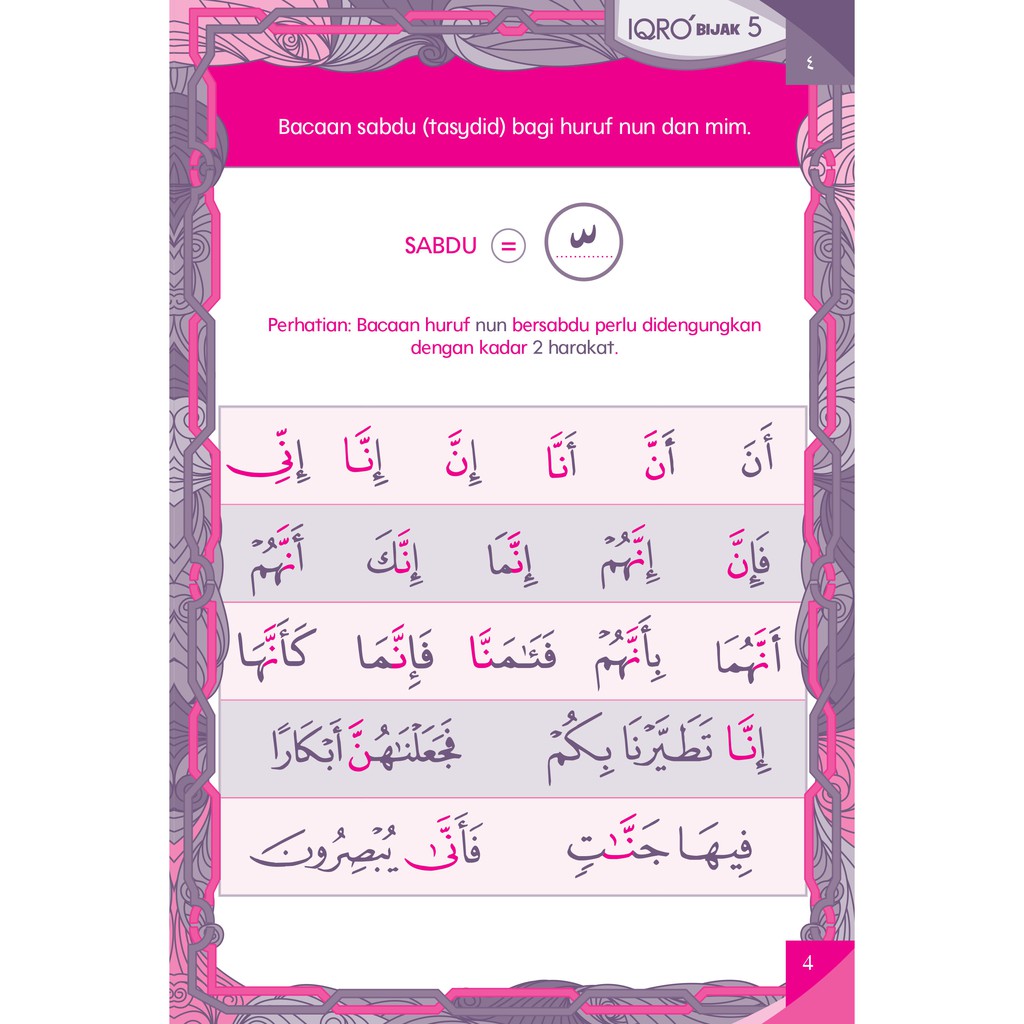 IQRO' BIJAK 5
٤
Bacaan sabdu (tasydid) bagi huruf nun dan mim.
SABDU = ّ
Perhatian: Bacaan huruf nun bersabdu perlu didengungkan
dengan kadar 2 harakat.
أَنَ أَنَّ أَنَّا إِنَّ إِنَّا إِنِّى
فَإِنَّ إِنَّهُمْ إِنَّمَا إِنَّكَ أَنَّهُمْ
أَنَّهُمَا بِأَنَّهُمْ فَـَٔامَنَّا فَإِنَّمَا كَأَنَّهَا
إِنَّا تَطَيَّرْنَا بِكُمْ فَجَعَلْنَٰهُنَّ أَبْكَارًا
فِيهَا جَنَّٰتٍ فَأَنَّىٰ يُبْصِرُونَ
4